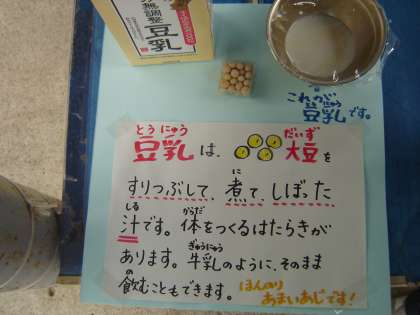 無調整
豆乳
これが
とうにゅう
豆乳です。
とうにゅう だいず
豆乳は、大豆を
に
すりつぶして、煮て、しぼった
しる からだ
汁です。体をつくるはたらきが
ぎゅうにゅう
あります。牛乳のように、そのまま
の
飲むこともできます。
ほんのり
あまいあじです!